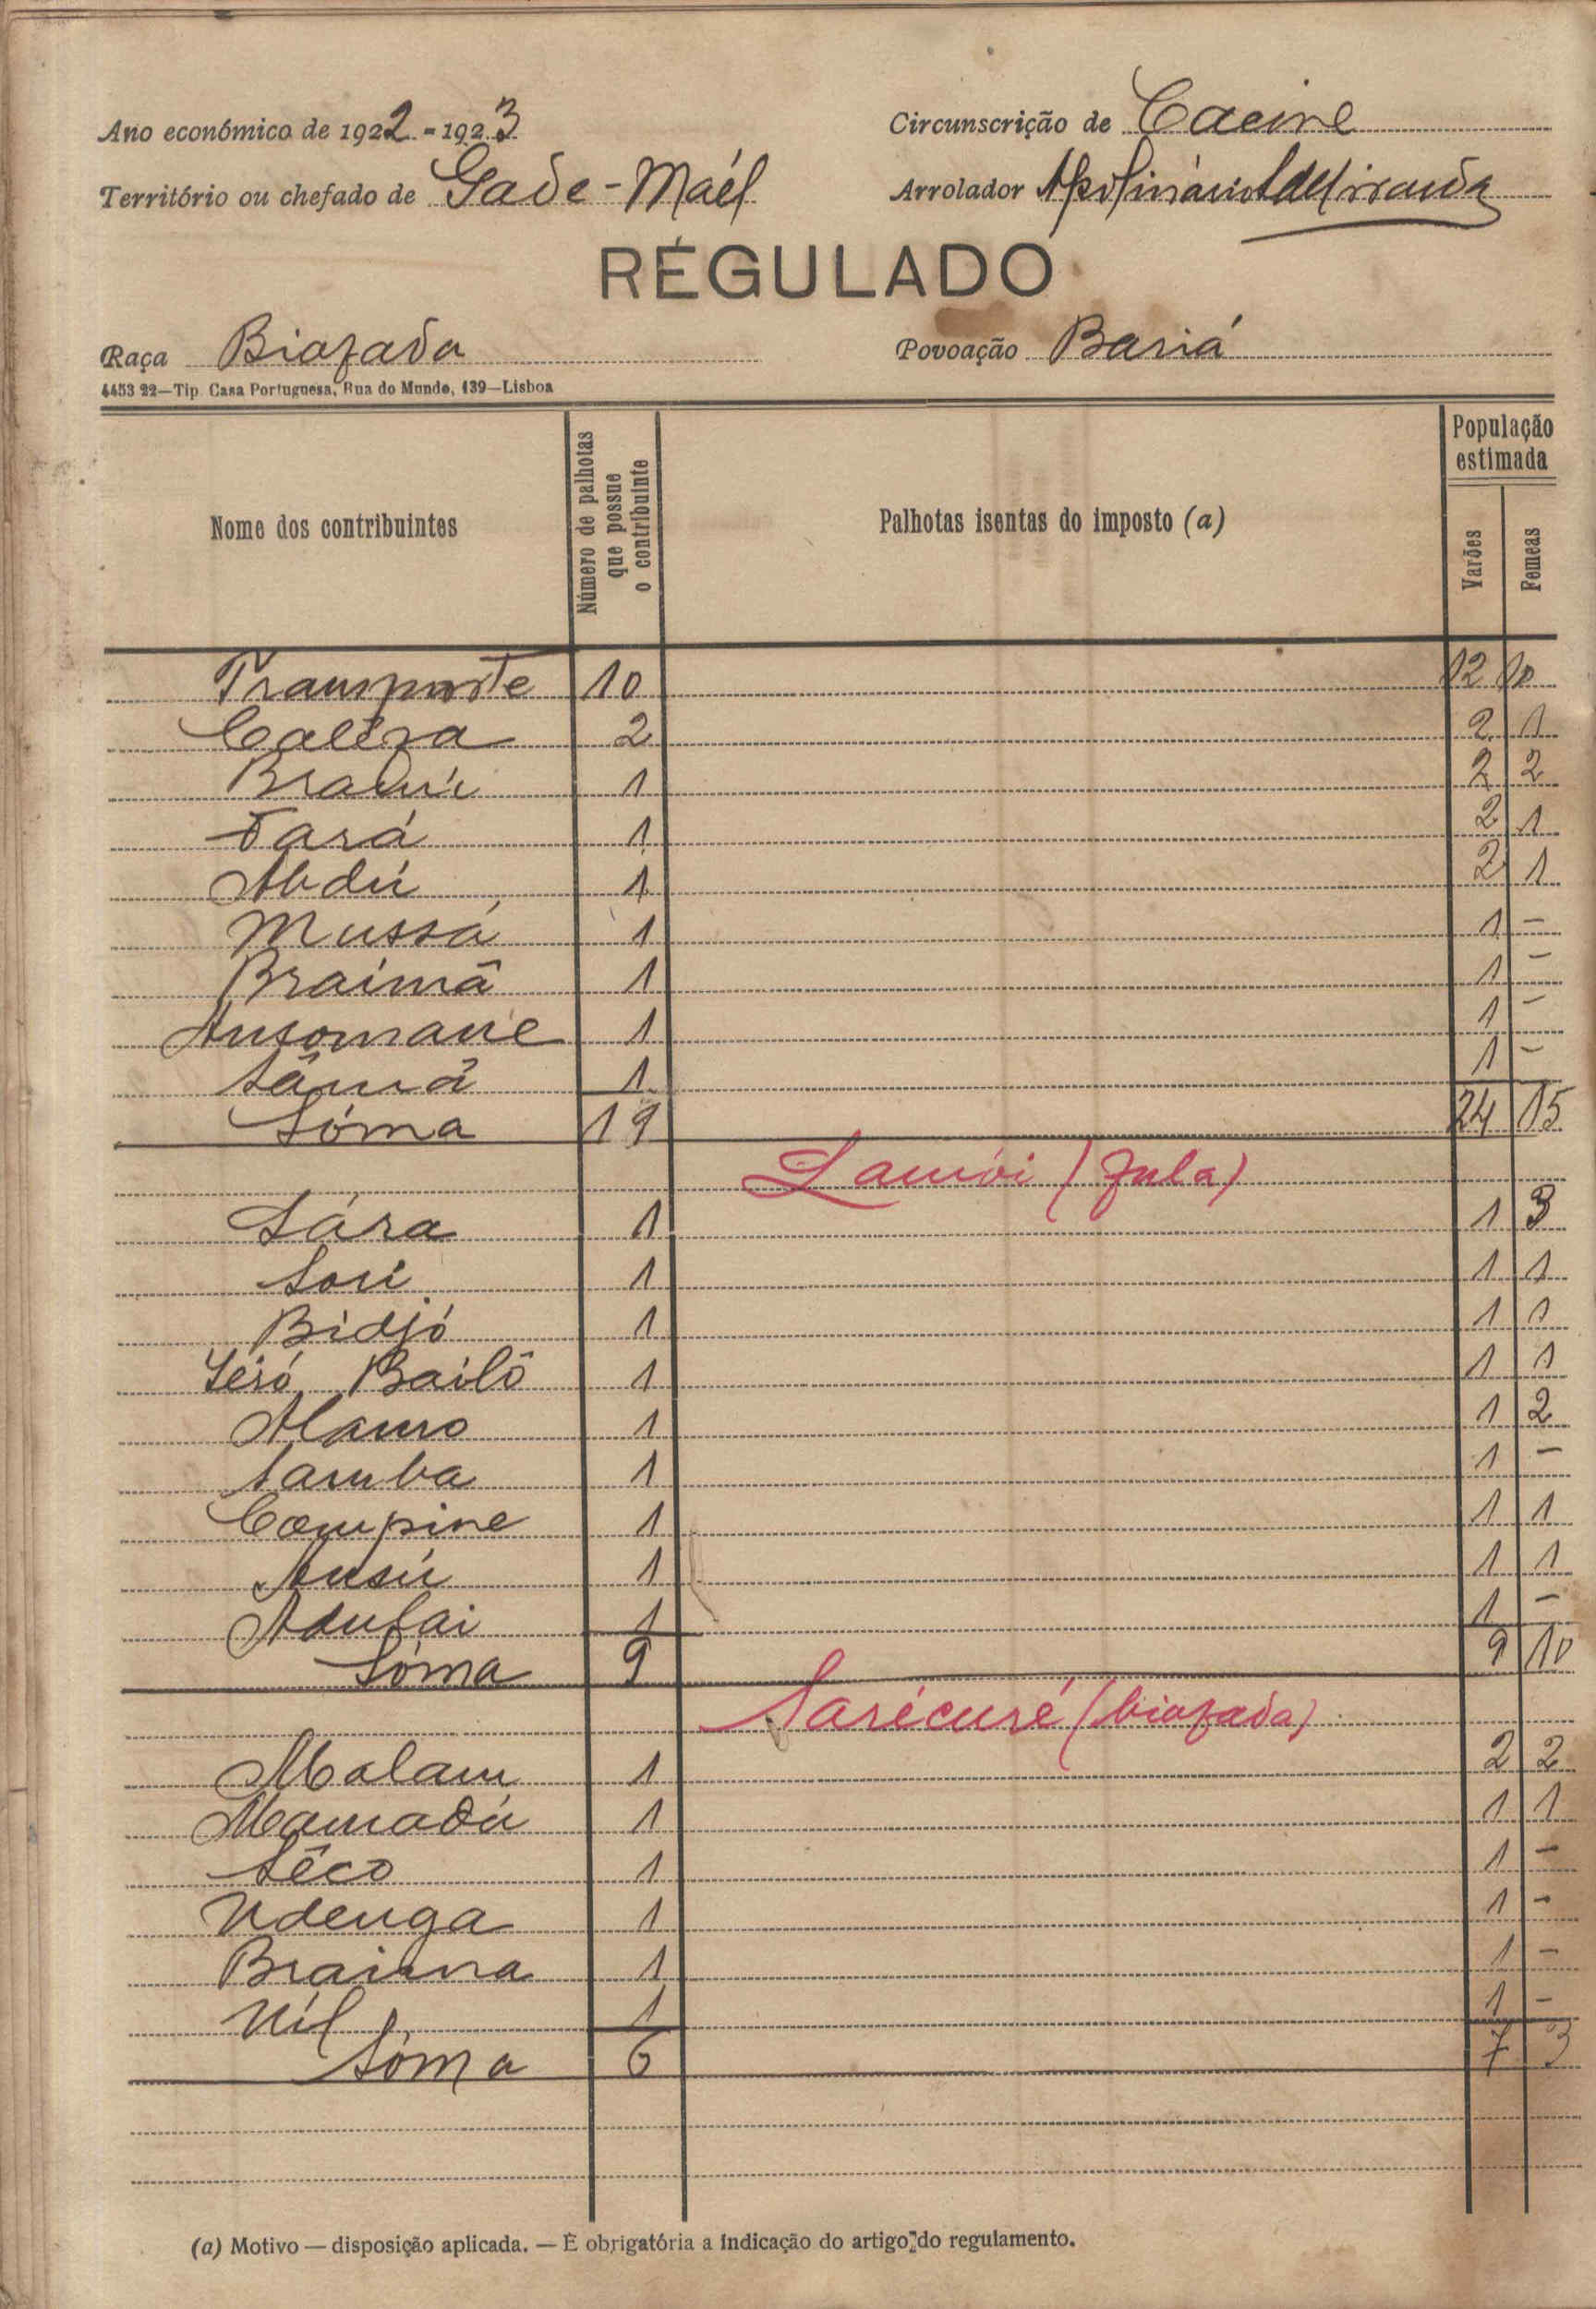 Ano económico de 1922 - 1923 Circunscrição de Cacine
Território ou chefado de Gade-Maél Arrolador Apolinário A de Miranda
REGULADO
Raça Biafada Povoação Bariá
4453 22—Tip. Casa Portuguesa, Rua do Mundo, 139—Lisboa
Nome dos contribuintes Número de palhotas que possue o contribuinte Palhotas isentas do imposto (a) População estimada
Varões Femeas
Transporte 10 12 10
Caléra 2 2 1
1 2 2
Fará 1 2 1
Abdú 1 2 1
Mussá 1 1 -
Braimã 1 1 -
Ansomane 1 1 -
Sãmã 1 1 -
Sóma 19 24 15
Lamói (fula)
Sára 1 1 3
Sori 1 1 1
Bidjó 1 1 1
Iéró Bailô 1 1 1
Alamo 1 1 2
Samba 1 1 -
Campine 1 1 1
Ansú 1 1 1
Adulai 1 1 -
Sóma 9 9 10
Sarécuré (biafada)
Malam 1 2 2
Mamadú 1 1 1
Sêco 1 1 -
Ndenga 1 1 -
Braima 1 1 -
Nil 1 1 -
Sóma 6 7 3
(a) Motivo — disposição aplicada. — É obrigatória a indicação do artigo do regulamento.